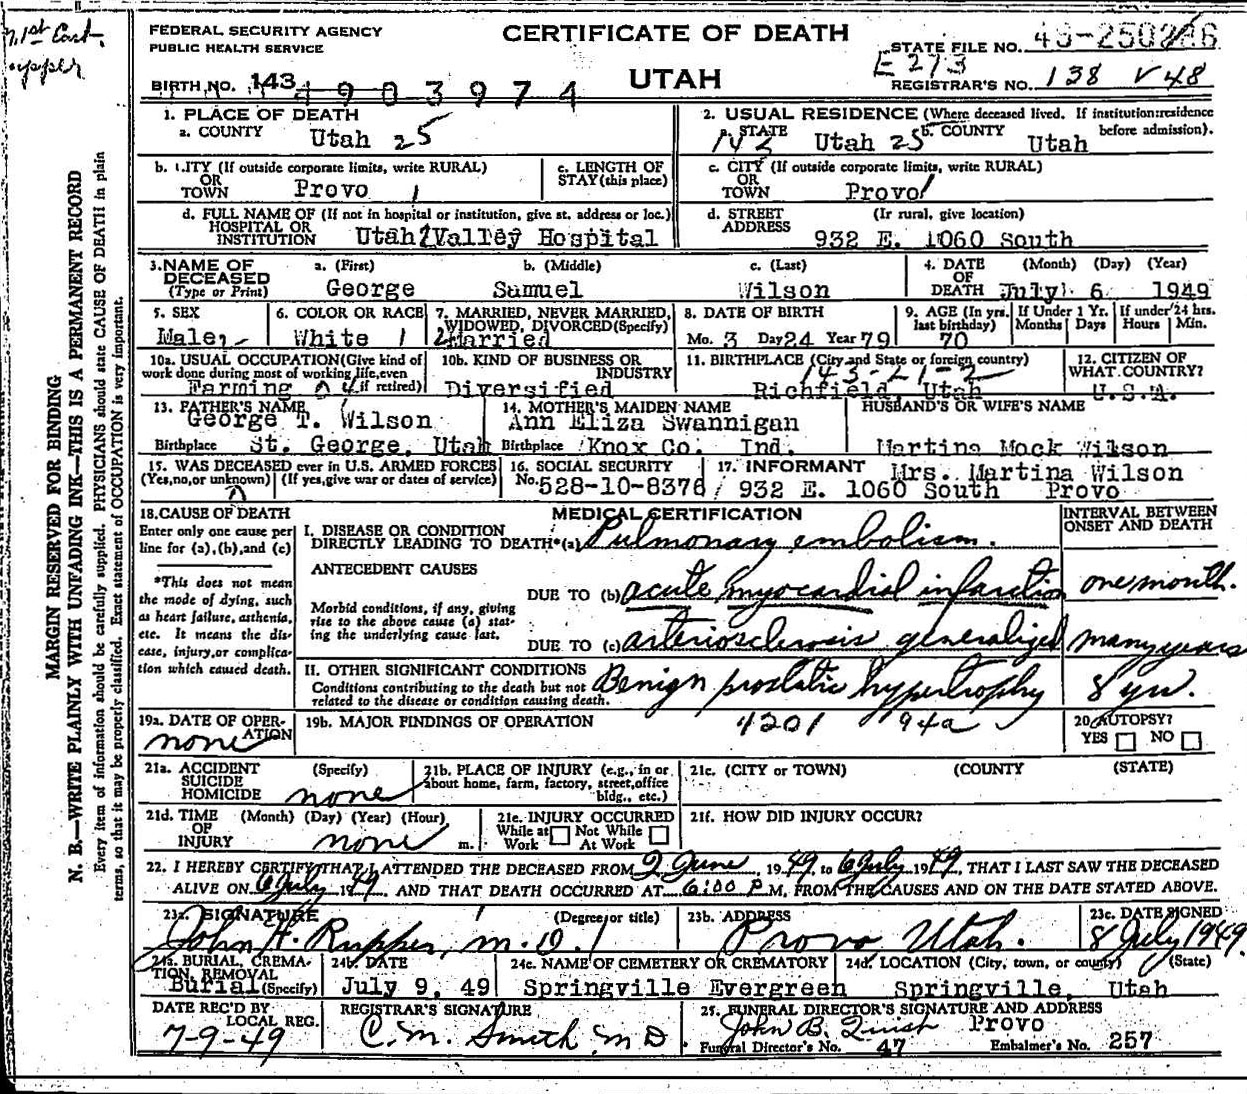 FEDERAL SECURITY AGENCY
PUBLIC HEALTH SERVICE
CERTIFICATE OF DEATH
UTAH
STATE FILE NO.
E 273
REGISTRAR'S NO. 138 V 48
BIRTH NO. 143 4903974
1. PLACE OF DEATH
a. COUNTY Utah 25
2. USUAL RESIDENCE (Where deceased lived. If institution: residence before admission).
a. STATE Utah 25 b. COUNTY Utah
b. CITY (If outside corporate limits, write RURAL) OR TOWN Provo 1
c. LENGTH OF STAY (this place)
c. CITY (If outside corporate limits, write RURAL) OR TOWN Provo
d. FULL NAME OF (If not in hospital or institution, give st. address or loc.) HOSPITAL OR INSTITUTION Utah Valley Hospital
d. STREET ADDRESS (If rural, give location) 932 E. 1060 South
3. NAME OF DECEASED (Type or Print)
a. (First) George
b. (Middle) Samuel
c. (Last) Wilson
4. DATE OF DEATH (Month) (Day) (Year) July 6 1949
5. SEX Male
6. COLOR OR RACE White 1
7. MARRIED, NEVER MARRIED, WIDOWED, DIVORCED (Specify) Married
8. DATE OF BIRTH Mo. 3 Day 24 Year 79
9. AGE (In yrs. last birthday) 70
If Under 1 Yr. Months Days
If under 24 hrs. Hours Min.
10a. USUAL OCCUPATION (Give kind of work done during most of working life, even if retired) Farming
10b. KIND OF BUSINESS OR INDUSTRY Diversified
11. BIRTHPLACE (City and State or foreign country) 143-21-2
Richfield, Utah
12. CITIZEN OF WHAT COUNTRY? U.S.A.
13. FATHER'S NAME George T. Wilson
Birthplace St. George, Utah
14. MOTHER'S MAIDEN NAME Ann Eliza Swannigan
Birthplace Knox Co. Ind.
HUSBAND'S OR WIFE'S NAME
Martina Mock Wilson
15. WAS DECEASED ever in U.S. ARMED FORCES (Yes, no, or unknown) (If yes, give war or dates of service)
16. SOCIAL SECURITY No. 528-10-8376
17. INFORMANT Mrs. Martina Wilson
932 E. 1060 South Provo
18. CAUSE OF DEATH
Enter only one cause per line for (a), (b), and (c)
*This does not mean the mode of dying, such as heart failure, asthenia, etc. It means the disease, injury, or complication which caused death.
MEDICAL CERTIFICATION
INTERVAL BETWEEN ONSET AND DEATH
I. DISEASE OR CONDITION DIRECTLY LEADING TO DEATH* (a) Pulmonary embolism.
ANTECEDENT CAUSES
Morbid conditions, if any, giving rise to the above cause (a) stating the underlying cause last.
DUE TO (b) acute myocardial infarction one month.
DUE TO (c) arteriosclerosis generalized many years
II. OTHER SIGNIFICANT CONDITIONS
Conditions contributing to the death but not related to the disease or condition causing death.
Benign prostatic hypertrophy 8 yrs.
19a. DATE OF OPERATION none
19b. MAJOR FINDINGS OF OPERATION 4201 94a
20. AUTOPSY? YES NO
21a. ACCIDENT SUICIDE HOMICIDE (Specify) none
21b. PLACE OF INJURY (e.g., in or about home, farm, factory, street, office bldg., etc.)
21c. (CITY or TOWN) (COUNTY) (STATE)
21d. TIME OF INJURY (Month) (Day) (Year) (Hour) none m.
21e. INJURY OCCURRED While at Work Not While At Work
21f. HOW DID INJURY OCCUR?
22. I HEREBY CERTIFY THAT I ATTENDED THE DECEASED FROM 2 June, 1949, to 6 July 1949, THAT I LAST SAW THE DECEASED
ALIVE ON 6 July 1949 AND THAT DEATH OCCURRED AT 6:00 P M, FROM THE CAUSES AND ON THE DATE STATED ABOVE.
23a. SIGNATURE (Degree or title) John H. Rupper, M.D.
23b. ADDRESS Provo Utah.
23c. DATE SIGNED 8 July 1949.
24a. BURIAL, CREMATION, REMOVAL (Specify) Burial
24b. DATE July 9, 49
24c. NAME OF CEMETERY OR CREMATORY Springville Evergreen
24d. LOCATION (City, town, or county) (State) Springville, Utah
DATE REC'D BY LOCAL REG. 7-9-49
REGISTRAR'S SIGNATURE C. M. Smith M D.
25. FUNERAL DIRECTOR'S SIGNATURE AND ADDRESS
John B. Provo
Funeral Director's No. 47 Embalmer's No. 257
MARGIN RESERVED FOR BINDING
N. B.—WRITE PLAINLY WITH UNFADING INK—THIS IS A PERMANENT RECORD
Every item of information should be carefully supplied. PHYSICIANS should state CAUSE OF DEATH in plain
terms, so that it may be properly classified. Exact statement of OCCUPATION is very important.